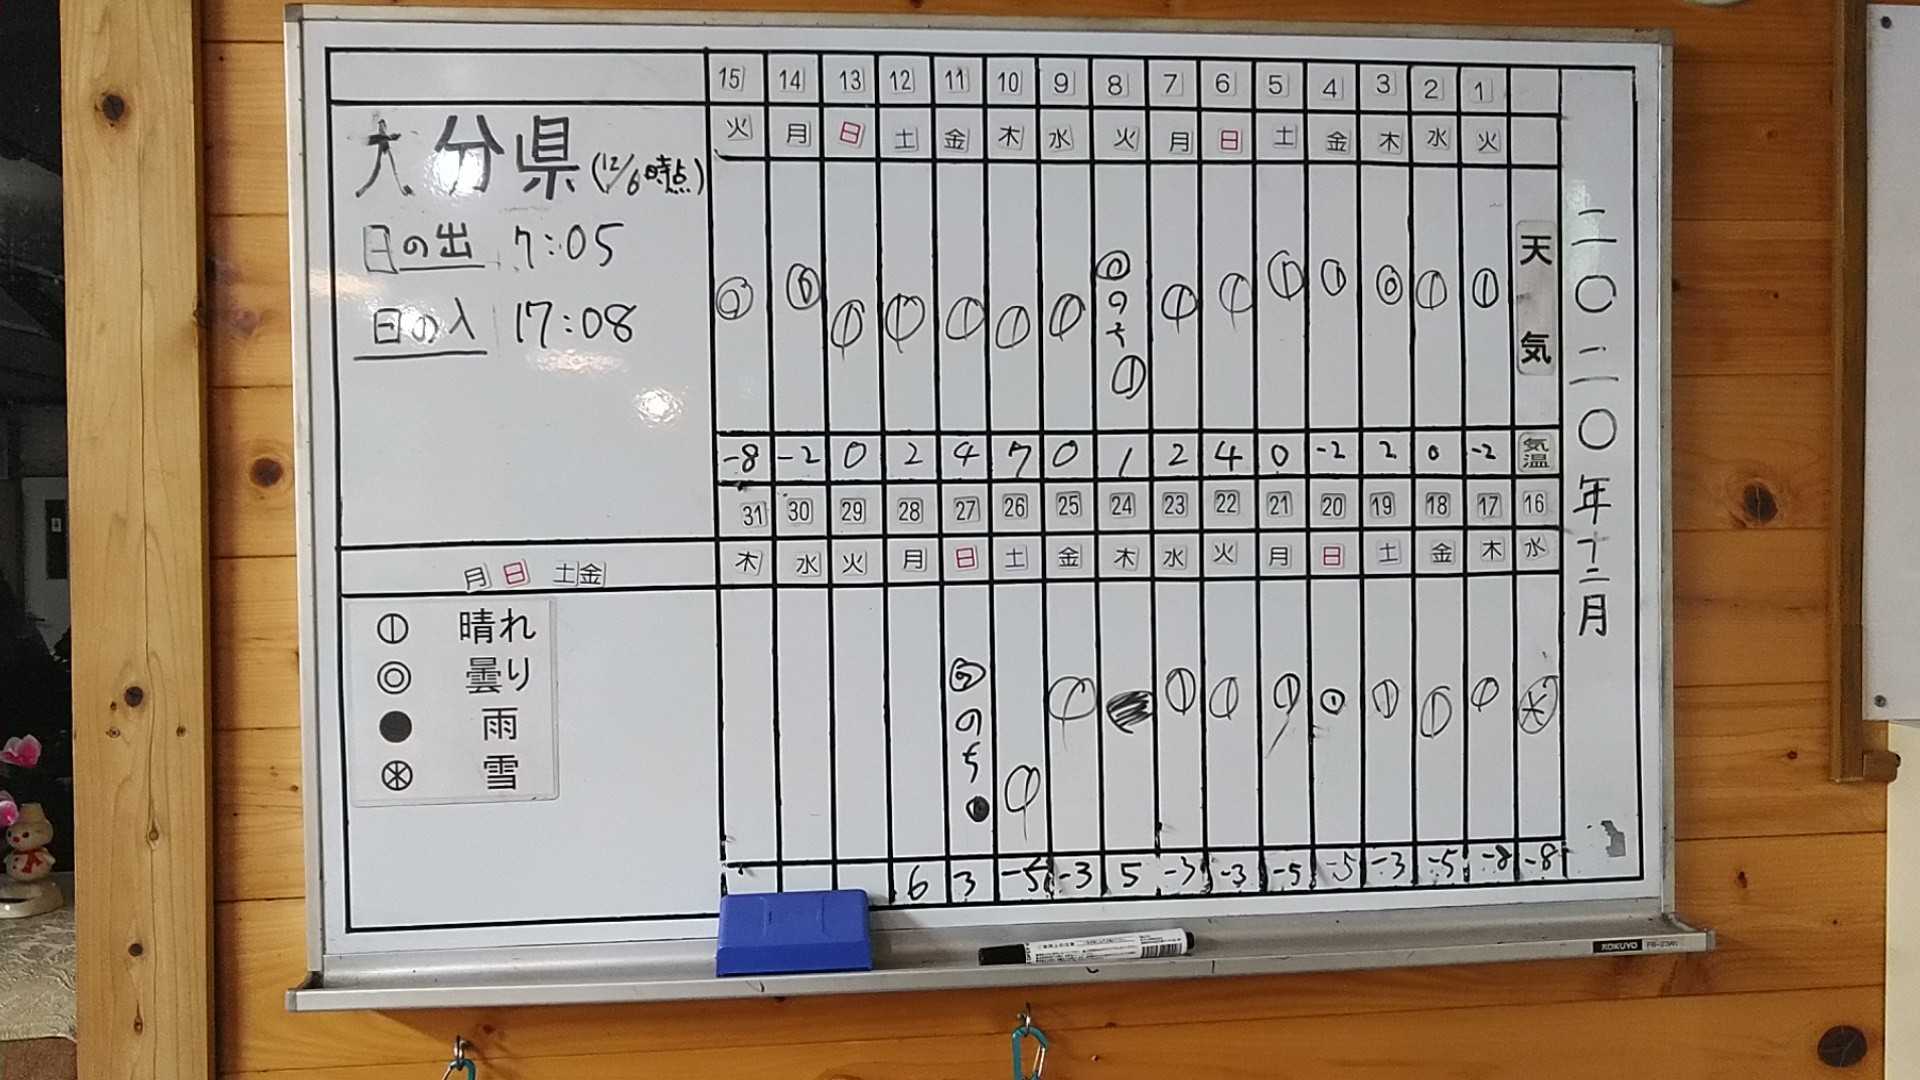 二〇二〇年十二月
15 14 13 12 11 10 9 8 7 6 5 4 3 2 1
火 月 日 土 金 木 水 火 月 日 土 金 木 水 火
天気
◎のち
-8 -2 0 2 4 7 0 1 2 4 0 -2 2 0 -2 気温
31 30 29 28 27 26 25 24 23 22 21 20 19 18 17 16
木 水 火 月 日 土 金 木 水 火 月 日 土 金 木 水
◎のち●
6 3 -5 -3 5 -3 -3 -5 -5 -3 -5 -8 -8
大分県(12/6時点)
日の出 7:05
日の入 17:08
月 日 土 金
⦶ 晴れ
◎ 曇り
● 雨
雪
KOKUYO